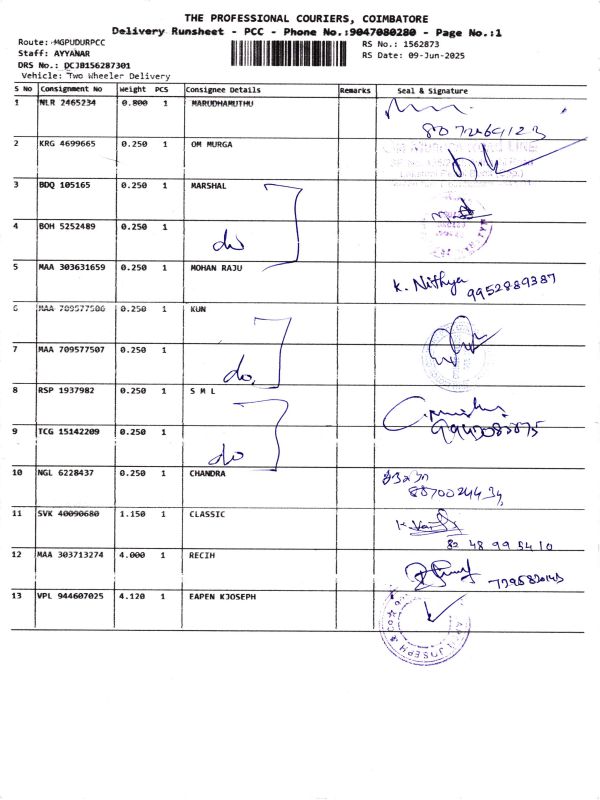 THE PROFESSIONAL COURIERS, COIMBATORE
Delivery Runsheet - PCC - Phone No.:9047080280 - Page No.:1
Route: MGPUDURPCC
Staff: AYYANAR
DRS No.: DCJB156287301
Vehicle: Two Wheeler Delivery
RS No.: 1562873
RS Date: 09-Jun-2025
S No Consignment No Weight PCS Consignee Details Remarks Seal & Signature
1 NLR 2465234 0.800 1 MARUDHAMUTHU
2 KRG 4699665 0.250 1 OM MURGA
3 BDQ 105165 0.250 1 MARSHAL
4 BOH 5252489 0.250 1 do
5 MAA 303631659 0.250 1 MOHAN RAJU K. Nithya 9952889387
6 MAA 709577506 0.250 1 KUN
7 MAA 709577507 0.250 1 do.
8 RSP 1937982 0.250 1 S M L
9 TCG 15142209 0.250 1 do
10 NGL 6228437 0.250 1 CHANDRA
11 SVK 40090680 1.150 1 CLASSIC
82 48 99 54 10
12 MAA 303713274 4.000 1 RECIH
13 VPL 944607025 4.120 1 EAPEN KJOSEPH